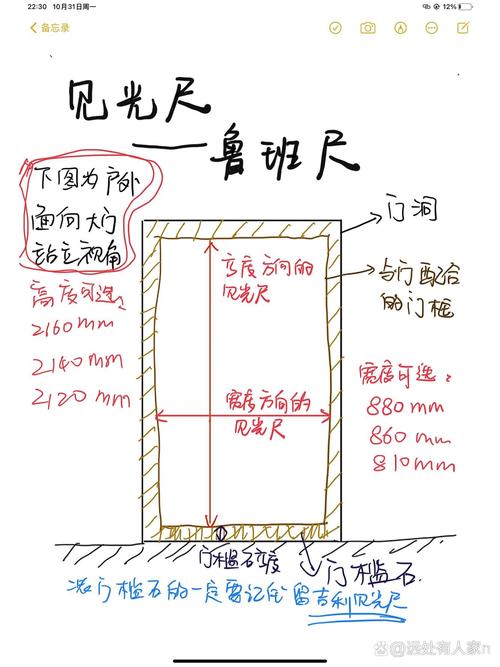 22:30 10月31日周一
12%
备忘录
见光尺
——鲁班尺
下图为户外
面向大门
站立视角
门洞
高度方向的
见光尺
与门配合
的门框
高度可选:
2160mm
2140mm
2120mm
宽度可选:
880mm
860mm
810mm
宽度方向的
见光尺
门槛石高度
门槛石.
门槛石的一定要记住留吉利见光尺
@远处有人家n